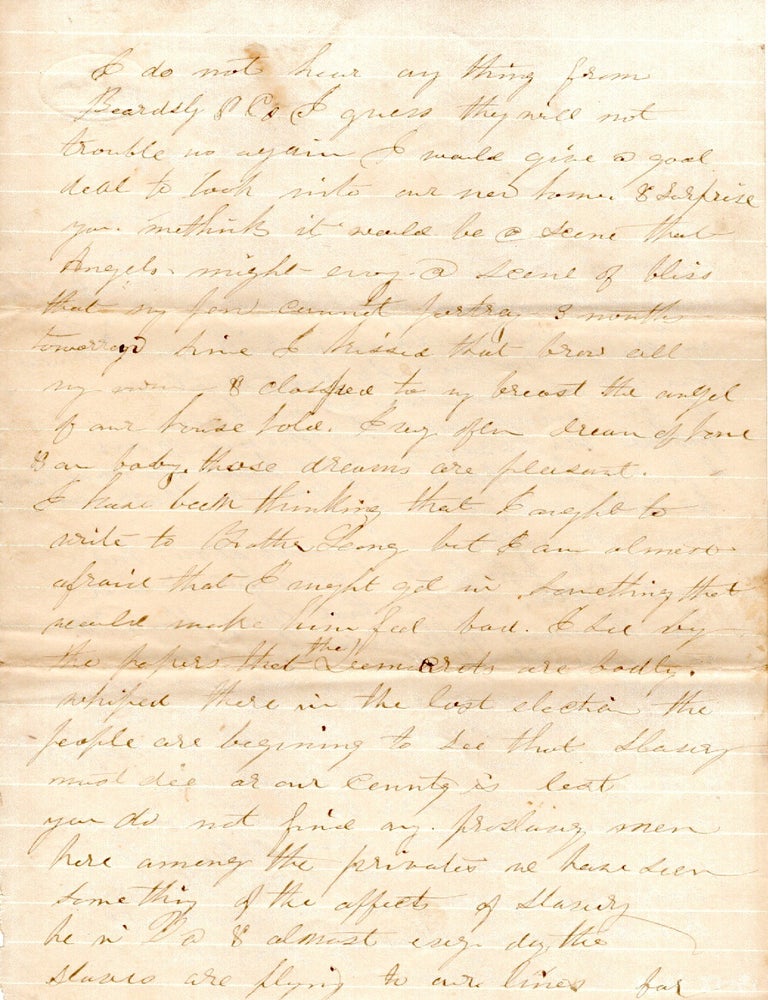 I do not hear any thing from
Beardsly & Co I guess they will not
trouble us again I would give a good
deal to look into our new home & surprise
you. methink it would be a scene that
Angels might envy a scene of bliss
that my pen cannot portray 3 month
tomorrow since I kissed that brow all
my own & clasped to my breast the angel
of our house hold. I very often dream of home
& our baby. those dreams are pleasant.
I have been thinking that I aught to
write to Brother Long but I am almost
afraid that I might get in something that
would make him feel bad. I see by
the papers that the Deemocrats are badly.
whiped there in the last election the
people are begining to see that Slavery
must die or our County is lost
you do not find any proslavy men
here among the privates we have seen
something of the affects of Slavery
he in Va & almost evry day the
slaves are flying to our lines for